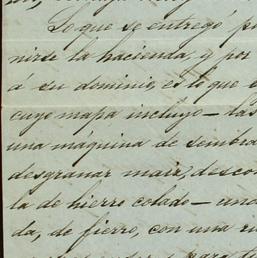 Lo que se entregó
nirse la hacienda, y por
á su dominio, es lo que
cuyo mapa incluyo - las
una máquina de sembra
desgranar maiz, desco
la de hierro colado - una
da, de fierro, con una